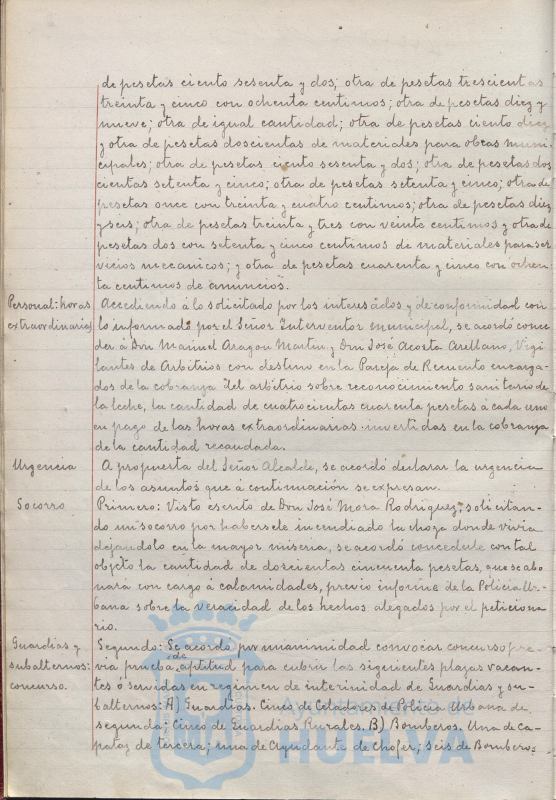 de pesetas ciento sesenta y dos; otra de pesetas trescientas
treinta y cinco con ochenta centimos; otra de pesetas diez y
nueve; otra de igual cantidad; otra de pesetas ciento diez
y otra de pesetas doscientas de materiales para obras muni-
cipales; otra de pesetas ciento sesenta y dos; otra de pesetas dos
cientas setenta y cinco; otra de pesetas setenta y cinco; otra de
pesetas once con treinta y cuatro centimos; otra de pesetas diez
y seis; otra de pesetas treinta y tres con veinte centimos y otra de
pesetas dos con setenta y cinco centimos de materiales para ser
vicios mecanicos; y otra de pesetas cuarenta y cinco con ochen-
ta centimos de anuncios.
Personal: horas
extraordinarias
Accediendo á lo solicitado por los interesados y de conformidad con
lo informado por el Señor Interventor municipal, se acordó conce-
der á Don Manuel Aragon Martin y Don José Acosta Arellano, Vigi
lantes de Arbitrios con destino en la Pareja de Recuento encarga-
dos de la cobranza del arbitrio sobre reconocimiento sanitario de
la leche, la cantidad de cuatrocientas cuarenta pesetas á cada uno
en pago de las horas extraordinarias invertidas en la cobranza
de la cantidad recaudada.
Urgencia
A propuesta del Señor Alcalde, se acordó declarar la urgencia
de los asuntos que á continuación se expresan.
Socorro
Primero: Visto escrito de Don José Mora Rodriguez, solicitan-
do un socorro por habersele incendiado la choza donde vivia
dejandolo en la mayor miseria, se acordó concederle con tal
objeto la cantidad de doscientas cincuenta pesetas, que se abo
nará con cargo á calamidades, previo informe de la Policia Ur-
bana sobre la veracidad de los hechos alegados por el peticiona
rio.
Guardias y
subalternos:
concurso.
Segundo: Se acordó por unanimidad convocar concurso pre-
via prueba de aptitud para cubrir las siguientes plazas vacan-
tes ó servidas en regimen de interinidad de Guardias y su-
balternos: A) Guardias. Cinco de Celadores de Policia Urbana de
segunda; Cinco de Guardias Rurales. B) Bomberos. Una de Ca-
pataz de tercera; una de Ayudante de Chofer; Seis de Bomberos
HUELVA